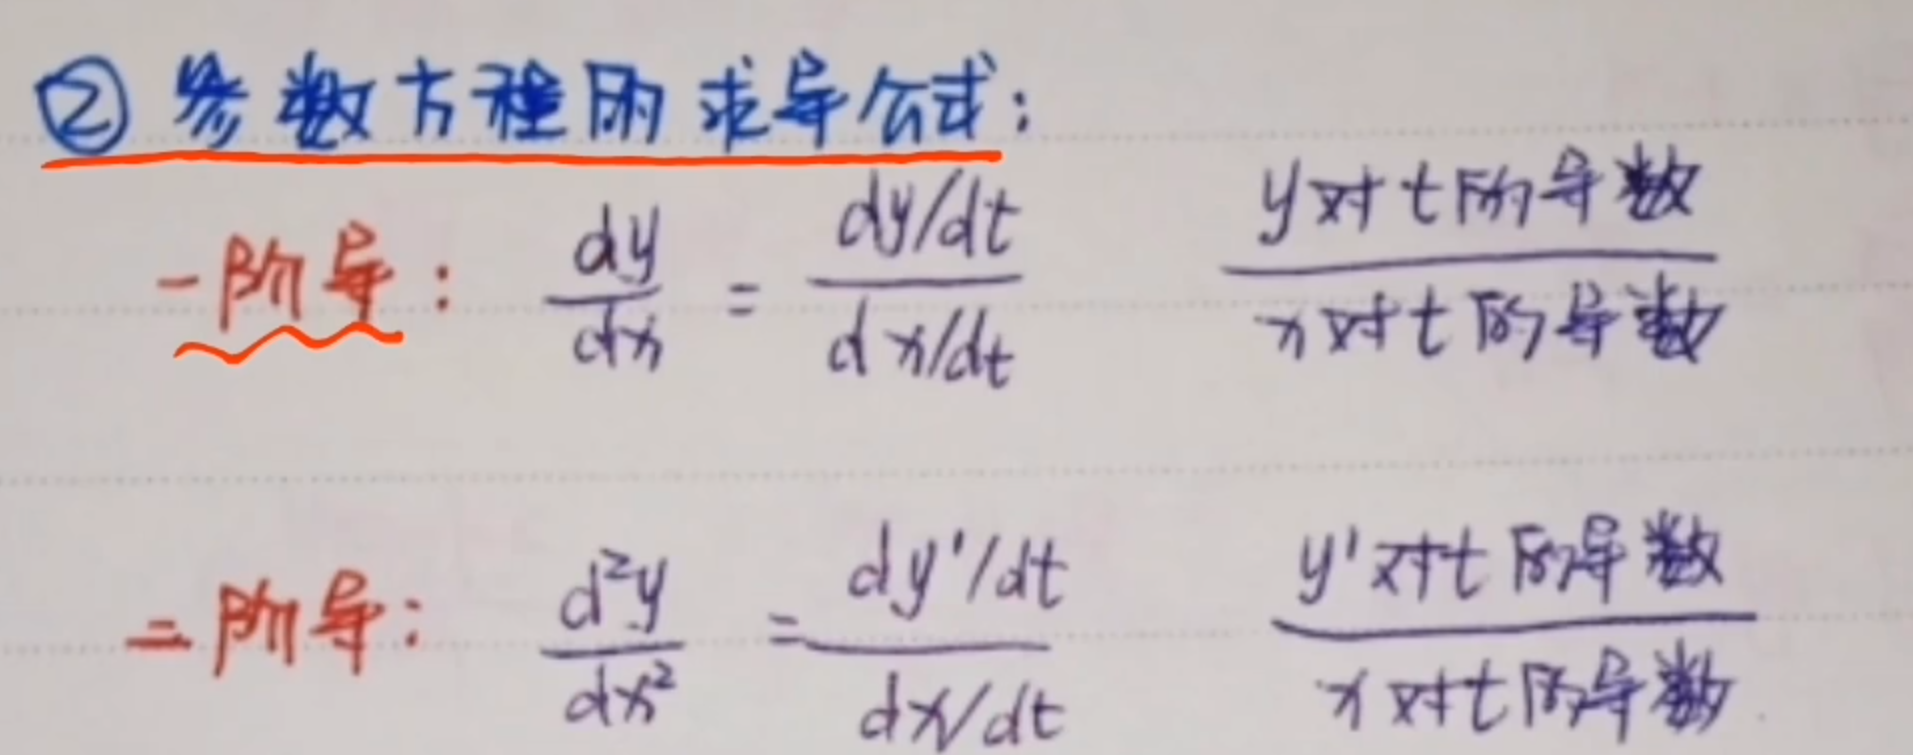 ② 参数方程的求导公式：
一阶导： dy/dx = (dy/dt)/(dx/dt) y对t的导数/x对t的导数
二阶导： d²y/dx² = (dy'/dt)/(dx/dt) y'对t的导数/x对t的导数